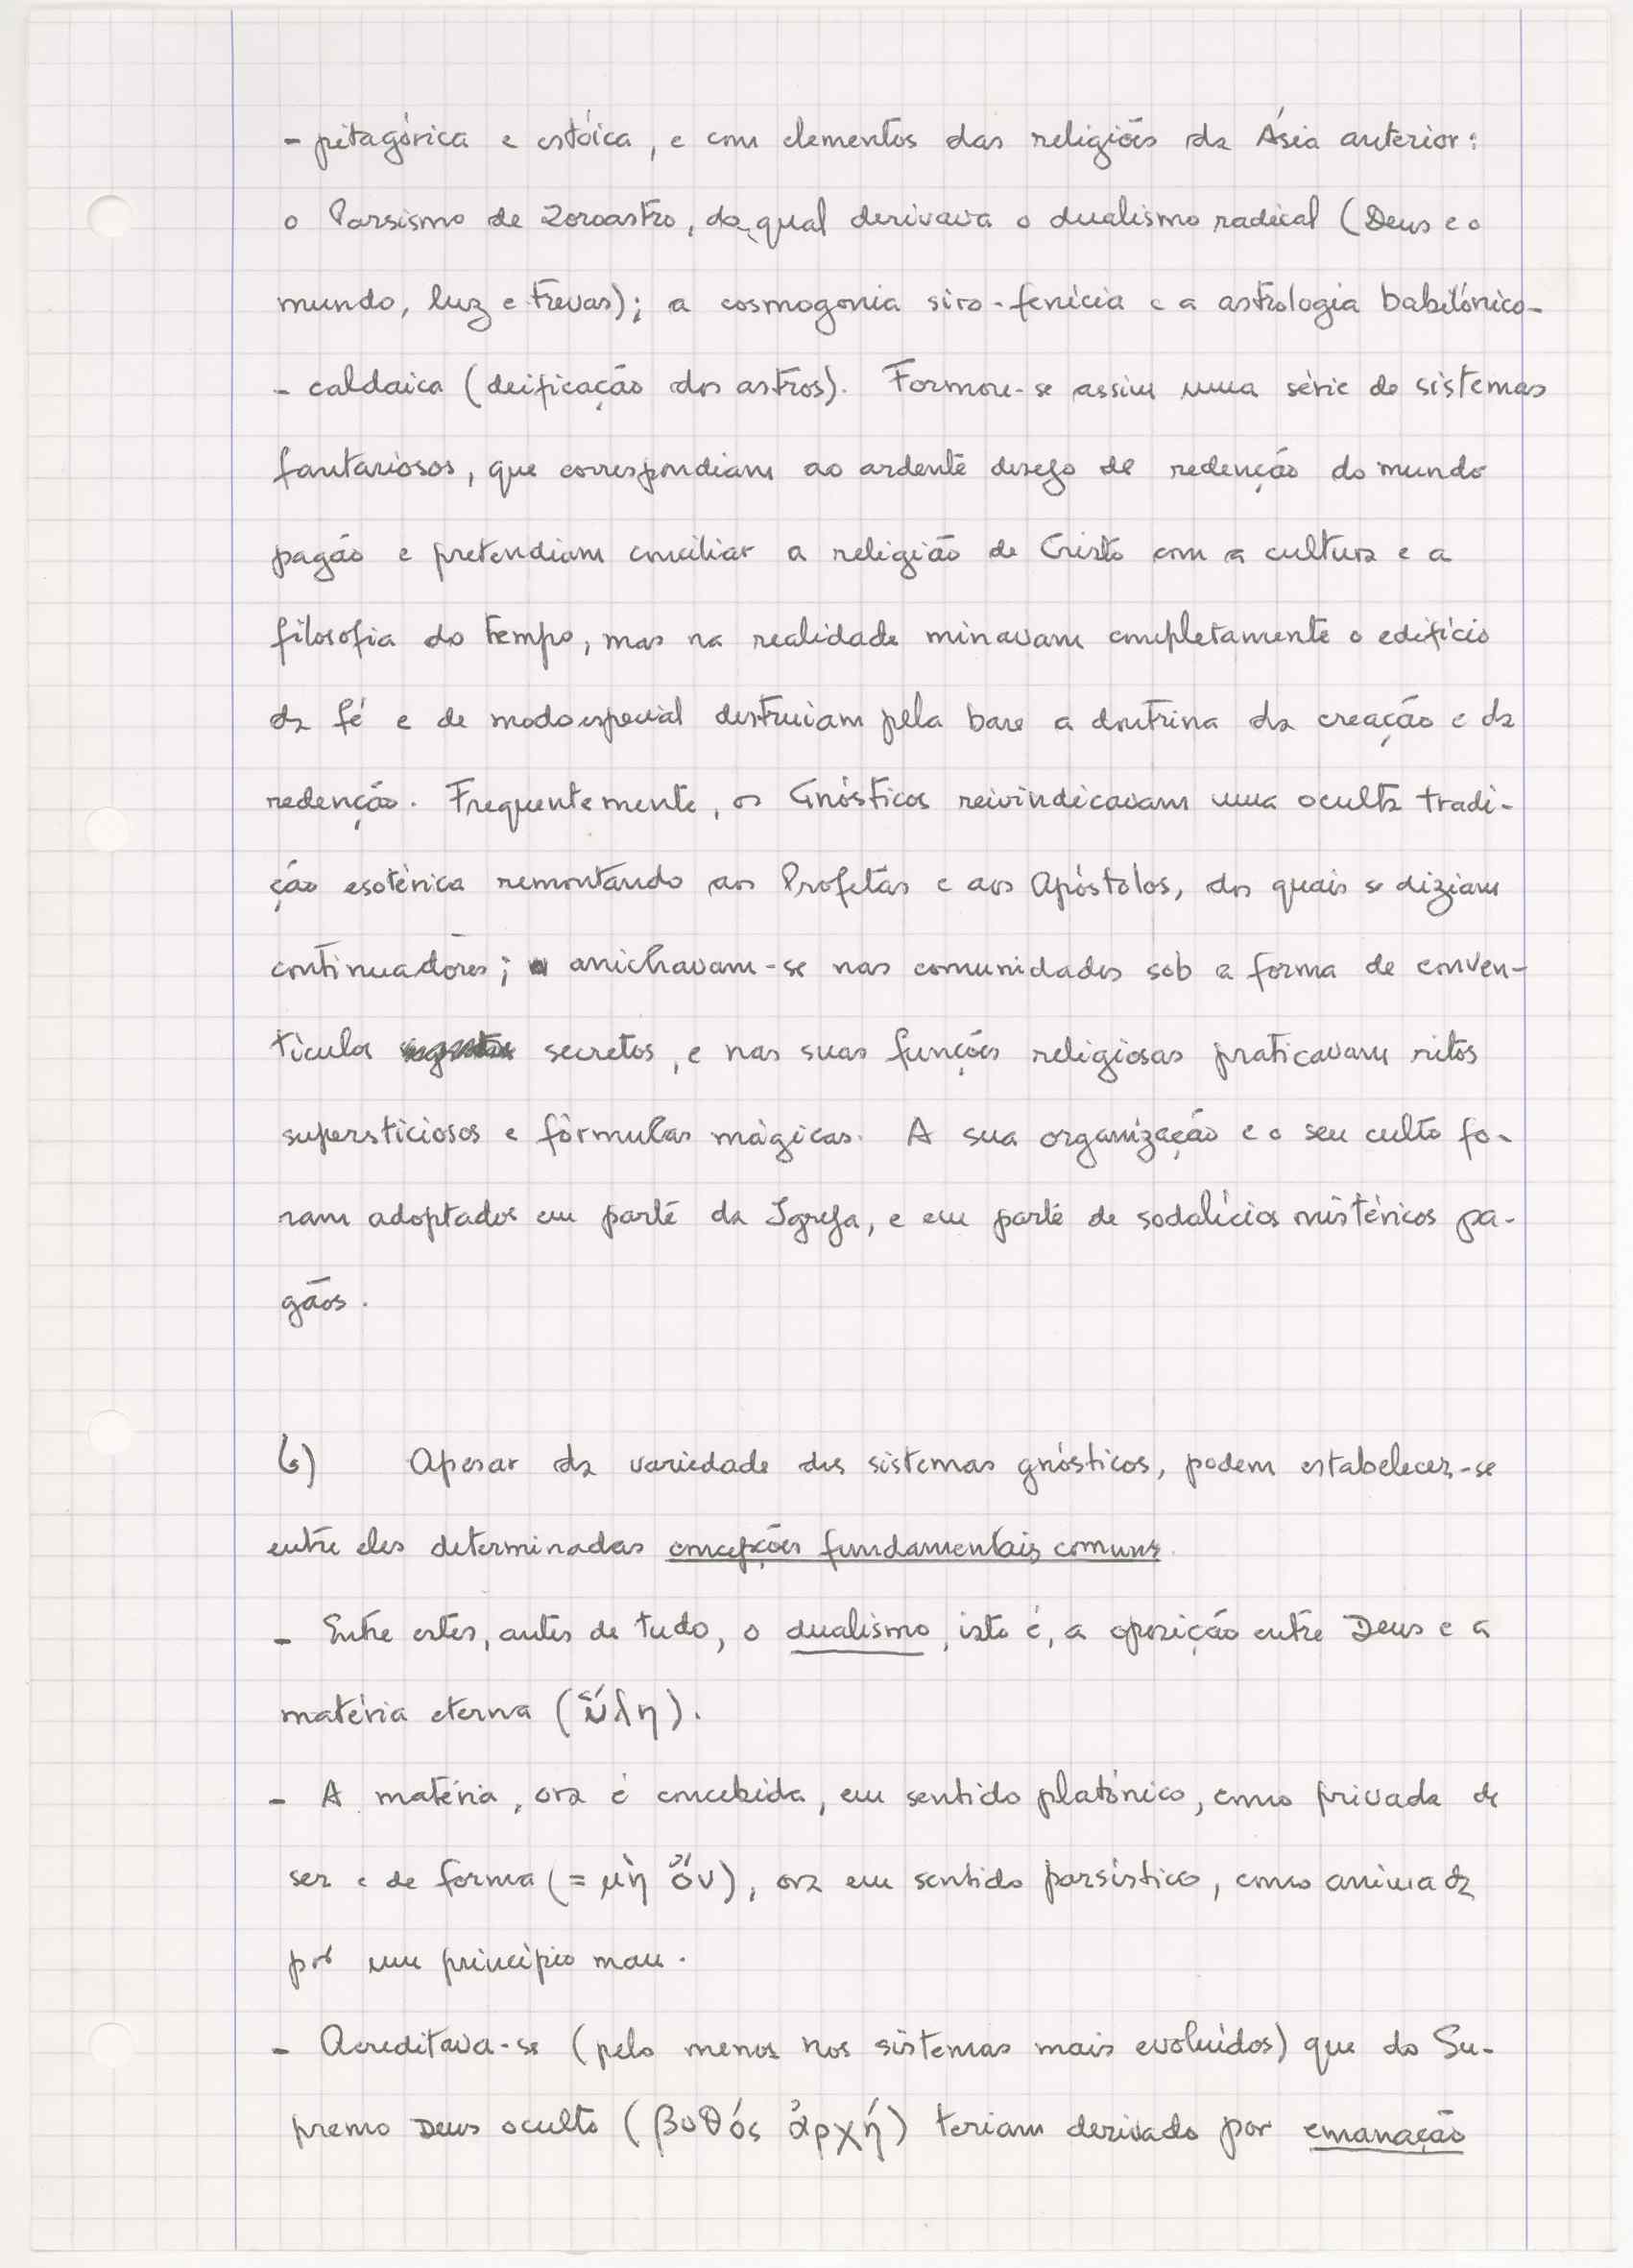 - pitagórica e estóica, e com elementos das religiões da Ásia anterior:
o Parsismo de Zoroastro, do qual derivava o dualismo radical (Deus e o
mundo, luz e trevas); a cosmogonia siro-fenícia e a astrologia babilónico-
- caldaica (deificação dos astros). Formou-se assim uma série de sistemas
fantasiosos, que correspondiam ao ardente desejo de redenção do mundo
pagão e pretendiam conciliar a religião de Cristo com a cultura e a
filosofia do tempo, mas na realidade minavam completamente o edifício
da fé e de modo especial destruiam pela base a doutrina da creação e da
redenção. Frequentemente, os Gnósticos reivindicavam uma oculta tradi-
ção esotérica remontando aos Profetas e aos Apóstolos, dos quais se diziam
continuadores; anichavam-se nas comunidades sob a forma de conven-
tículos secretos, e nas suas funções religiosas praticavam ritos
supersticiosos e fórmulas mágicas. A sua organização e o seu culto fo-
ram adoptados em parte da Igreja, e em parte de sodalícios mistéricos pa-
gãos.
6) Apesar da variedade dos sistemas gnósticos, podem estabelecer-se
entre eles determinadas concepções fundamentais comuns.
- Entre estes, antes de tudo, o dualismo, isto é, a oposição entre Deus e a
matéria eterna (ὕλη).
- A matéria, ora é concebida, em sentido platónico, como privada de
ser e de forma (= μὴ ὄν), ora em sentido parsístico, como animada
por um princípio mau.
- Acreditava-se (pelo menos nos sistemas mais evoluídos) que do Su-
premo Deus oculto (βυθός ἀρχή) teriam derivado por emanação